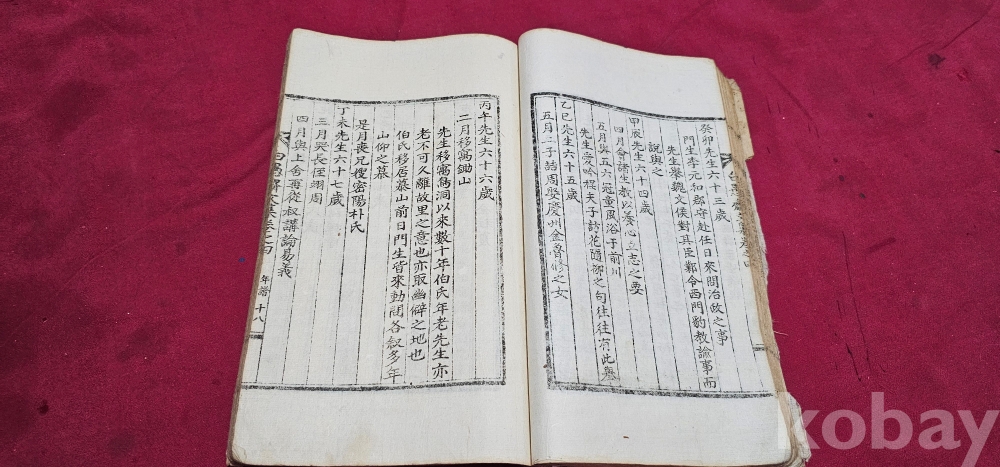 癸卯先生六十三歲
門生李元和郡守赴任日來問治政之事
先生擧魏文侯對其臣鄴令西門豹敎諭事而
說與之
甲辰先生六十四歲
四月會諸生敎以養心立志之要
五月與五六冠童風浴于前川
先生愛吟程夫子訪花隨柳之句往往有此擧
乙巳先生六十五歲
五月二子詰周娶慶州金魯修之女
丙午先生六十六歲
二月移寓鋤山
先生移寓爲洞以來數十年伯氏年老先生亦
老不可久離故里之意也亦取幽僻之地也
伯氏移居墓山前日門生皆來勳問各叙多年
山仰之慕
是月喪兄嫂密陽朴氏
丁未先生六十七歲
三月哭長侄翊周
四月與上舍再從叔講論易義
年譜 十八
kobay